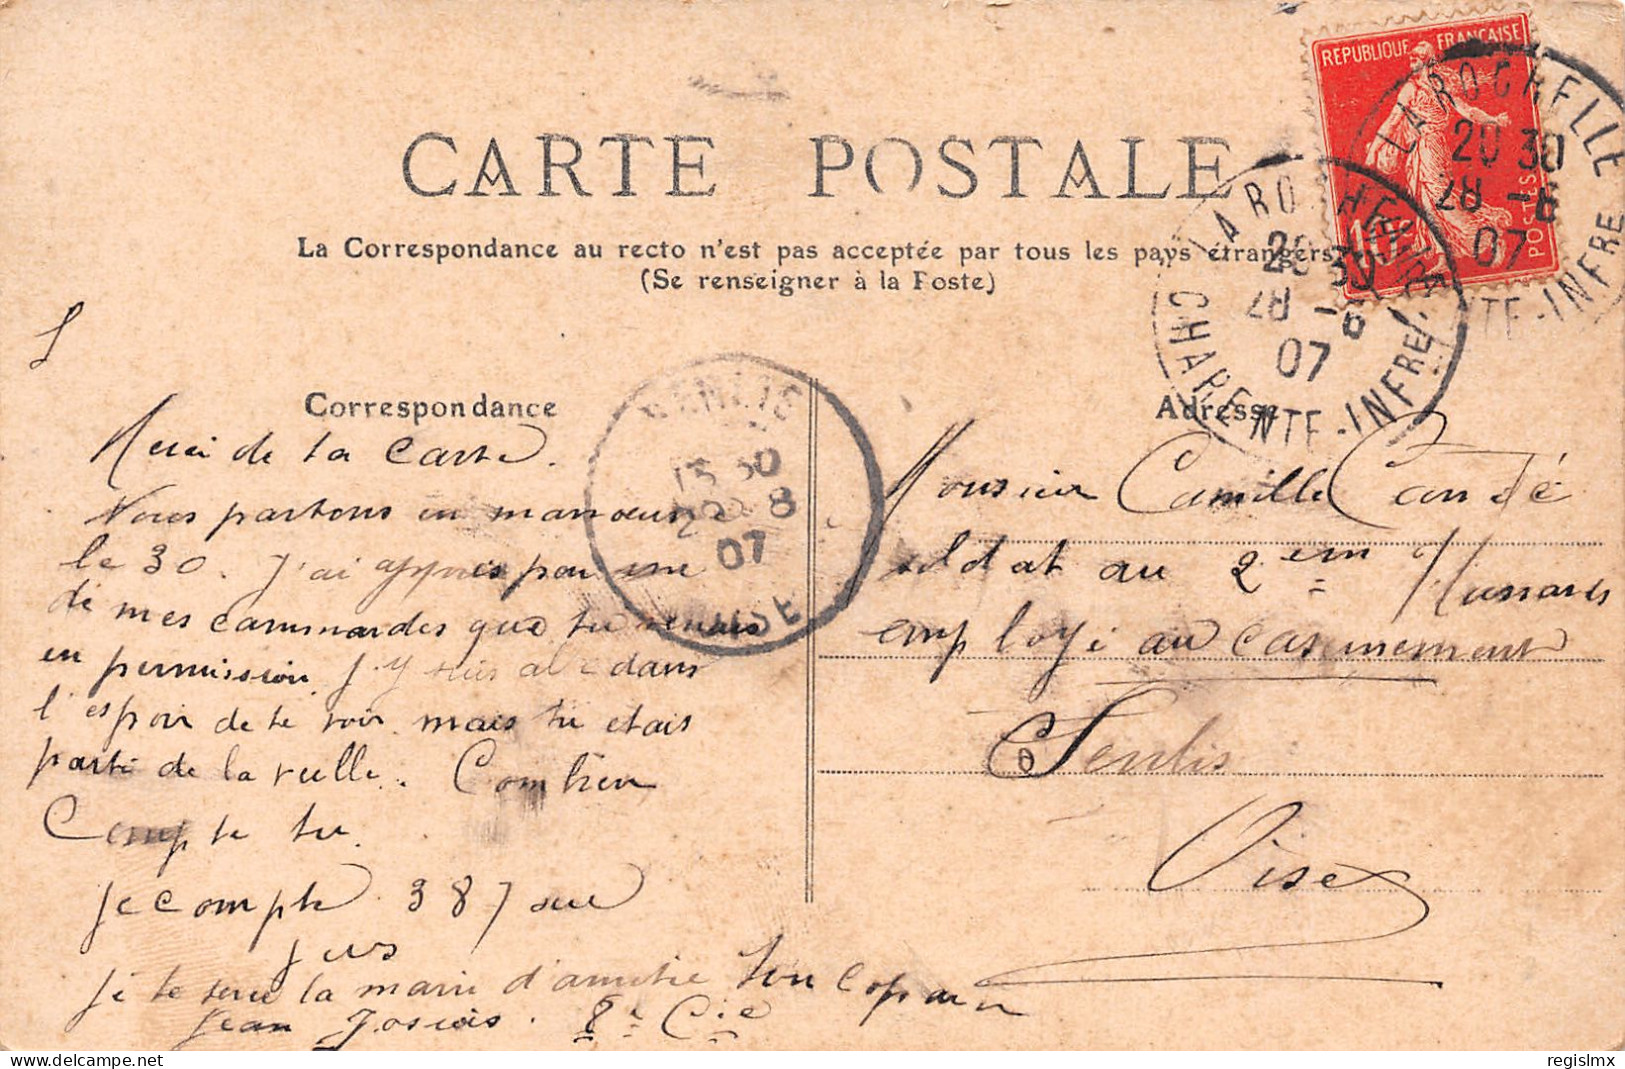 CARTE POSTALE
La Correspondance au recto n'est pas acceptée par tous les pays étrangers
(Se renseigner à la Poste)
REPUBLIQUE FRANÇAISE
10
POSTES
LA ROCHELLE
20 30
28 -8
07
CHARENTE-INFRE
LA ROCHELLE
20 30
28 -8
07
CHARENTE-INFRE
SENLIS
13 30
8
07
OISE
Correspondance
Merci de ta Carte.
Nous partons en manœuvre
le 30. J'ai appris par une
de mes cammardes que tu venais
en permission. J'y suis allé dans
l'espoir de te voir mais tu etais
parti de la ville. Combien
Compte tu.
Je compte 387 sur
jus
Je te serre la main d'amitié ton copain
Jean 8e Cie
Adresse
Monsieur Camille Condé
soldat au 2em Hussards
employé au casernement
Senlis
Oise
regislmx